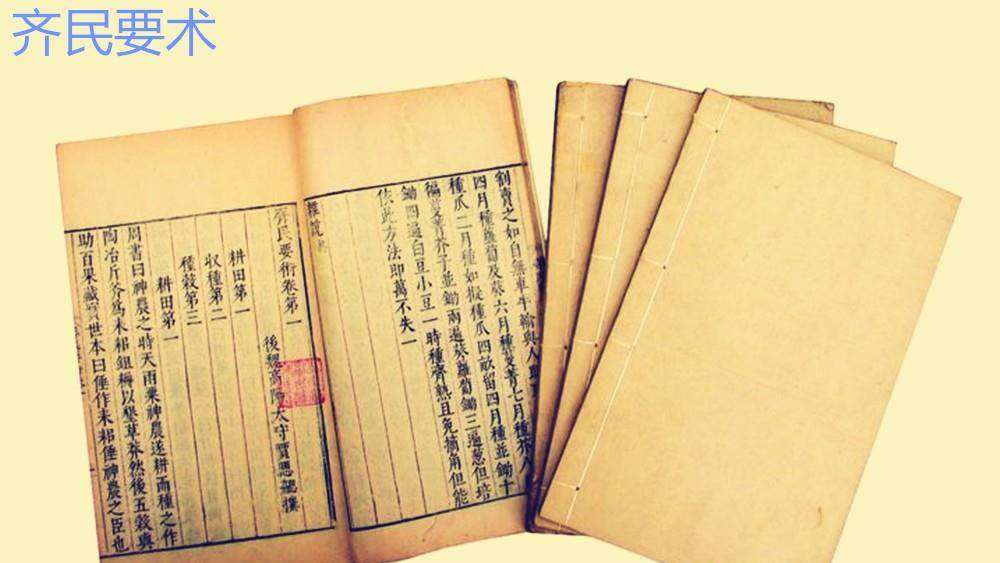 齐民要术
割賣之如自無車牛輸與人
四月種蘿蔔及葵六月種蔓菁七月種芥八
種瓜二月種如擬種瓜四畝留四月種並鋤十
徧蔓菁芥子並鋤兩遍葵蘿蔔鋤三遍葱但培
鋤四遍白豆小豆一時種齊熟且免摘角但能
依此方法即萬不失一
雜說
齊民要術卷第一
後魏高陽太守賈思勰撰
耕田第一
收種第二
種穀第三
耕田第一
周書曰神農之時天雨粟神農遂耕而種之作
陶冶斤斧爲耒耜鉏耨以墾草莽然後五穀興
助百果藏實世本曰倕作耒耜倕神農之臣也